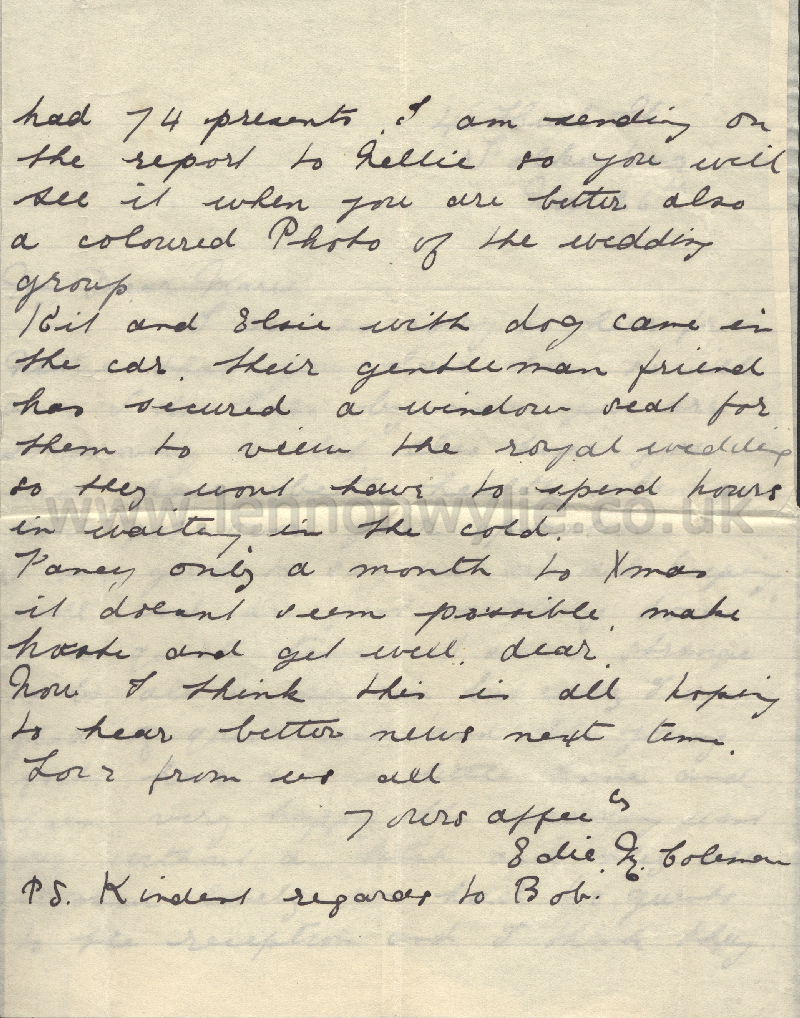 had 74 presents. I am sending on
the report to Nellie so you will
see it when you are better also
a coloured Photo of the wedding
group
Kit and Elsie with dog came in
the car. their gentleman friend
has secured a window seat for
them to view the royal wedding
so they wont have to spend hours
in waiting in the cold.
Fancy only a month to Xmas
it doesnt seem possible. make
haste and get well. dear.
Now I think this is all hoping
to hear better news next time.
Love from us all
Yours affec ly
Edie Coleman
PS. Kindest regards to Bob.
www.lennonwylie.co.uk